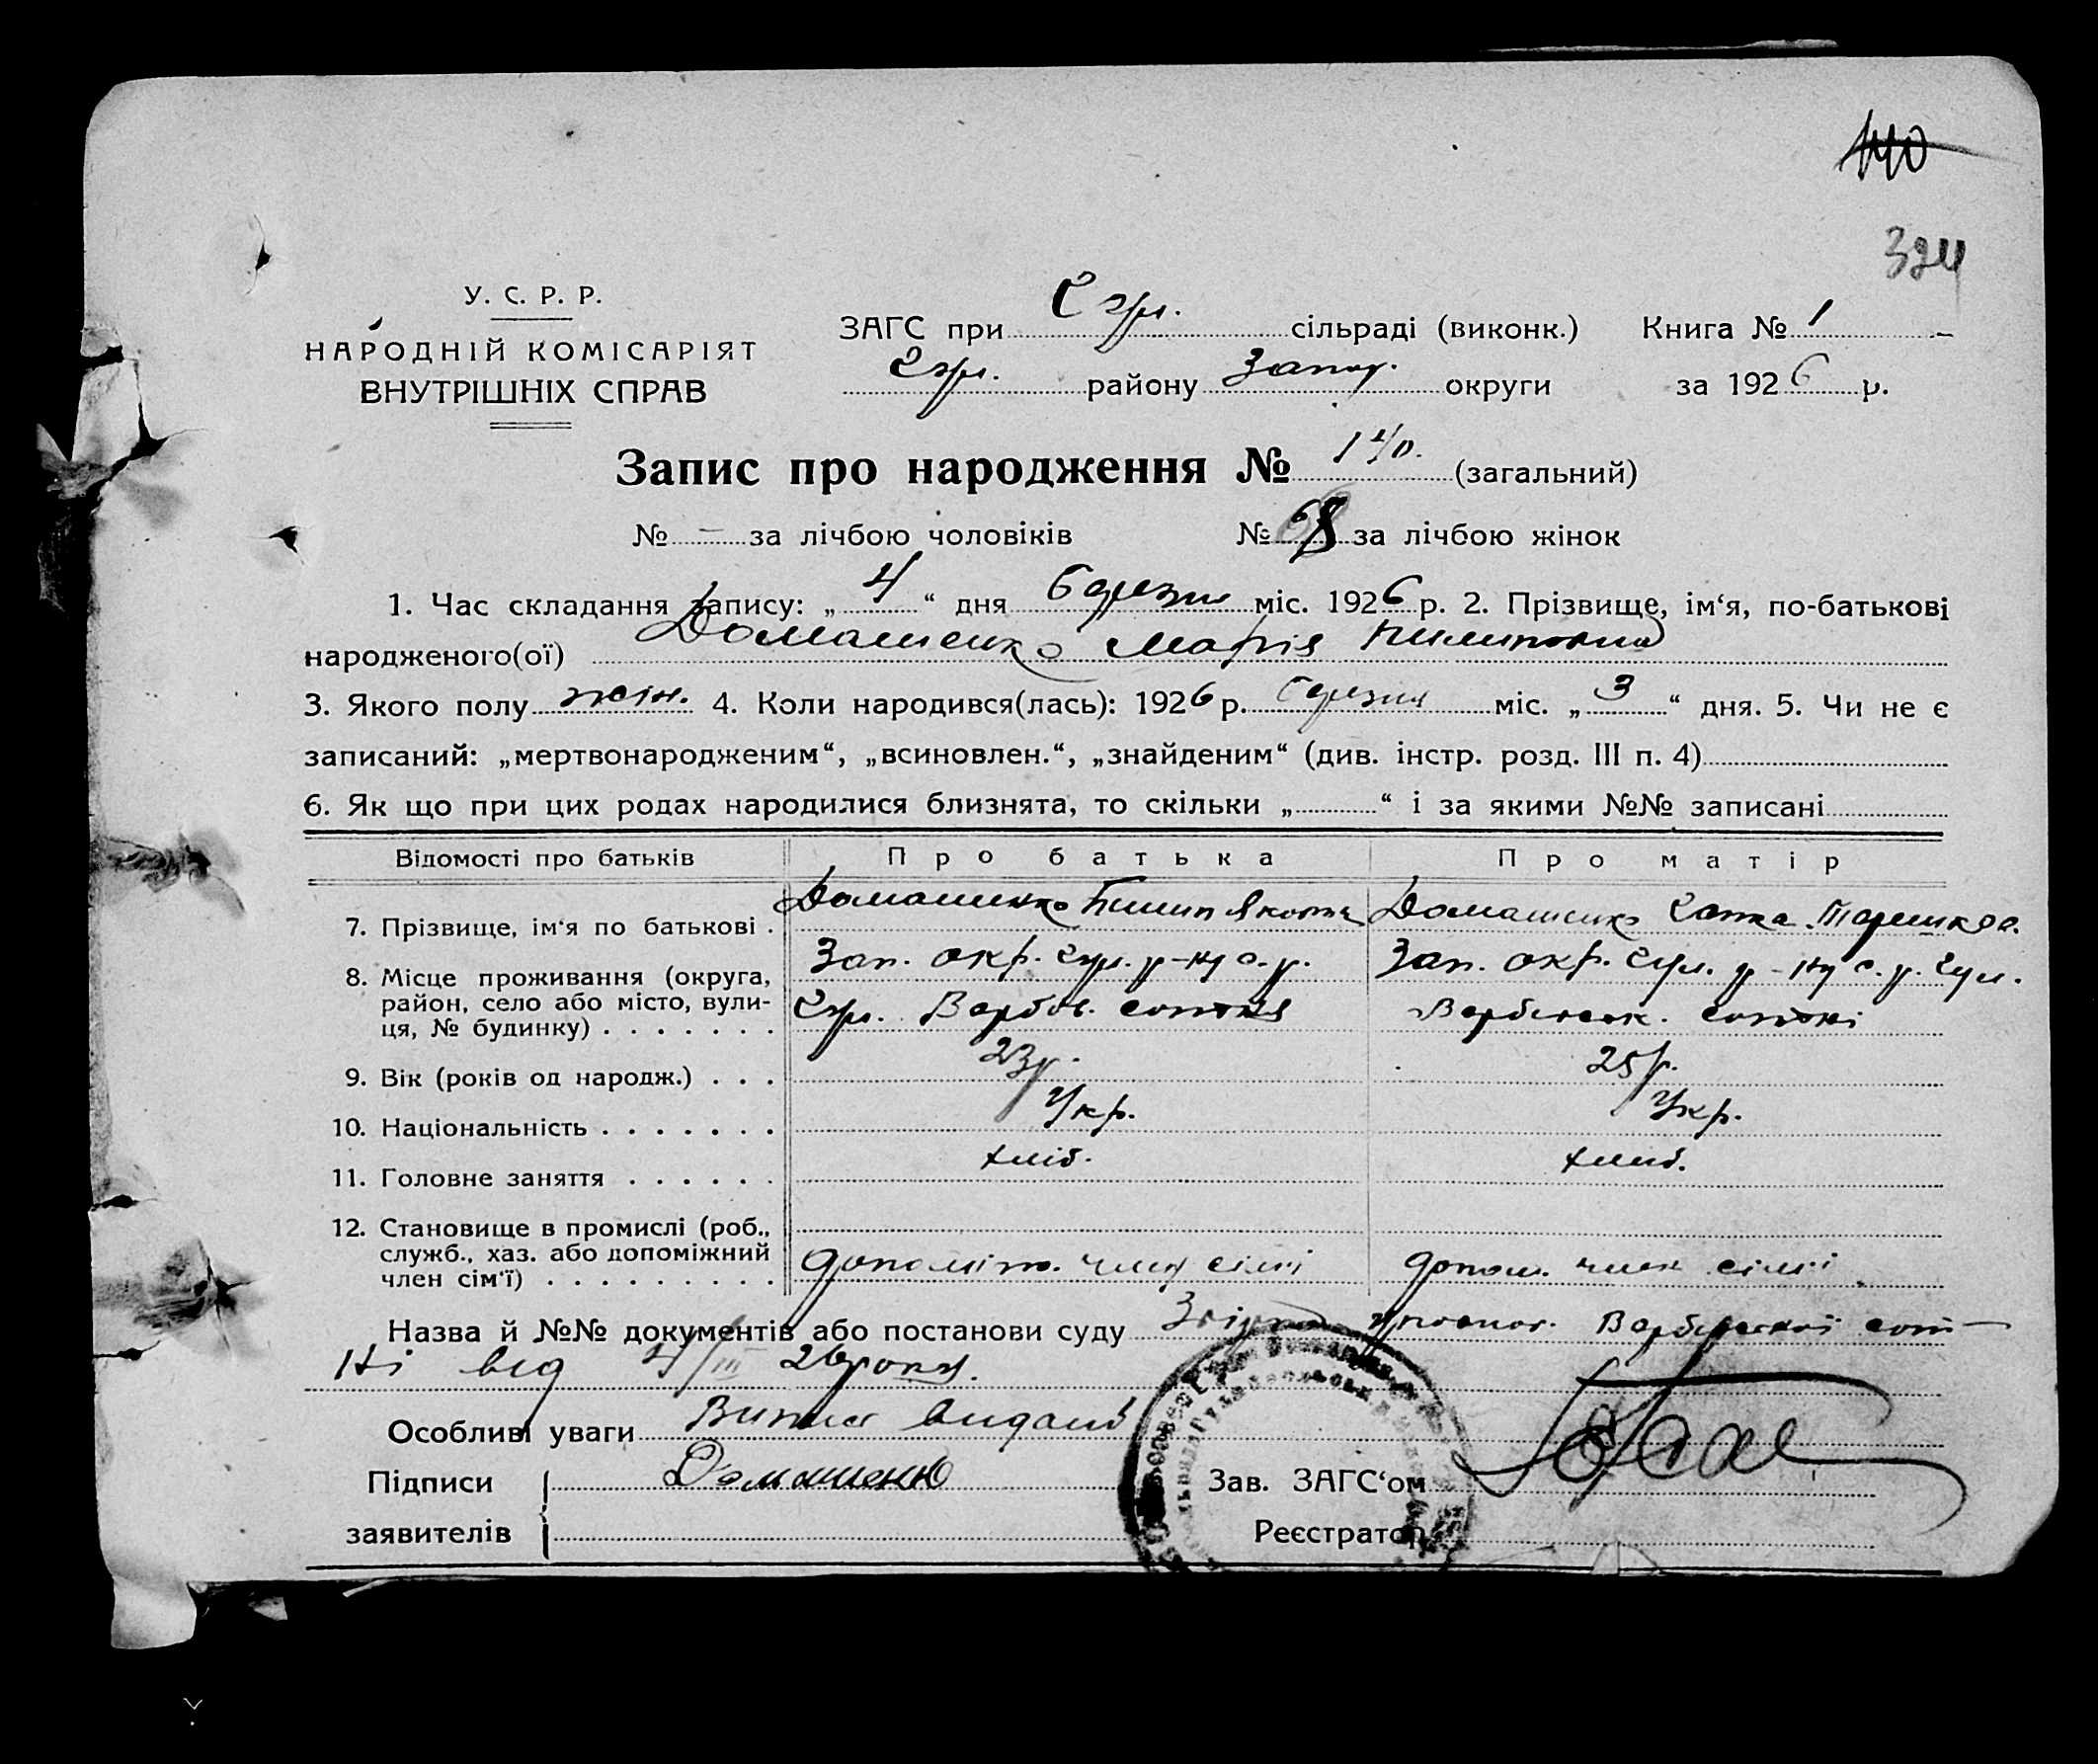 140
324
У. С. Р. Р.
НАРОДНІЙ КОМІСАРІЯТ
ВНУТРІШНІХ СПРАВ
ЗАГС при сільраді (виконк.) Книга № 1
району Запор. округи за 1926 р.
Запис про народження № 140. (загальний)
№ – за лічбою чоловіків № 68 за лічбою жінок
1. Час складання запису: „ 4 “ дня березня міс. 1926 р. 2. Прізвище, ім‘я, по-батькові
народженого(ої) Домашенко Марія Пилиповна
3. Якого полу жін. 4. Коли народився(лась): 1926 р. березня міс. „ 3 “ дня. 5. Чи не є
записаний: „мертвонародженим“, „всиновлен.“, „знайденим“ (див. інстр. розд. III п. 4)
6. Як що при цих родах народилися близнята, то скільки „ “ і за якими №№ записані
Відомості про батьків Про батька Про матір
7. Прізвище, ім‘я по батькові . Домашенко Пилип Якович Домашенко
8. Місце проживання (округа, Зап. окр. р-ну с. р. Зап. окр. р-ну с. р.
район, село або місто, вули- Варбов. сотня сотні
ця, № будинку) . . . . . . .
9. Вік (років од народж.) . . . 23 р. 25 р.
10. Національність . . . . . . . Укр. Укр.
11. Головне заняття . . . . . . хліб. хліб.
12. Становище в промислі (роб.,
служб., хаз. або допоміжний допоміж. член сімї допом. член сімї
член сім‘ї) . . . . . . . . . .
Назва й №№ документів або постанови суду сот–
ні від 4/III 26 року.
Особливі уваги Випис видано
Підписи Домашенко Зав. ЗАГС‘ом
заявителів Реєстратор